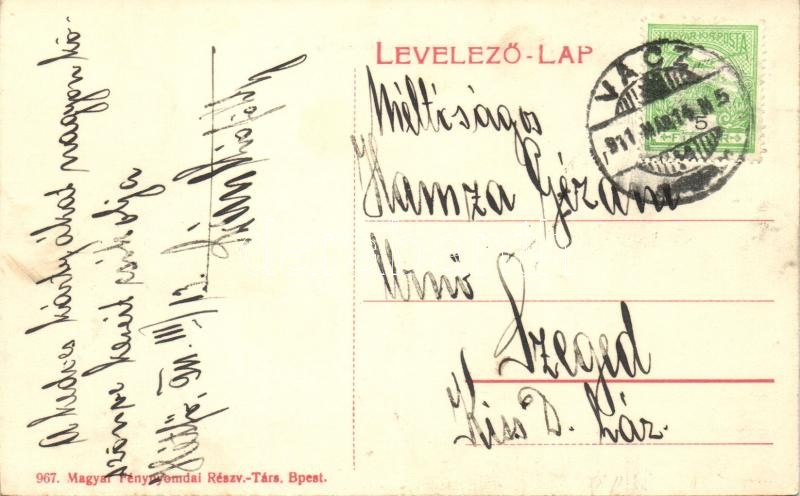 LEVELEZŐ-LAP
MAGYAR KIR. POSTA
VÁCZ
911 MÁR 14 N 5
5
Méltóságos
Hamza Gézáné
Urnő
Szeged
Kiss D. ház.
A kedves kártyákat nagyon kö-
szönve kezeit csókolja
911. III/13.
967. Magyar Fénynyomdai Részv.-Társ. Bpest.